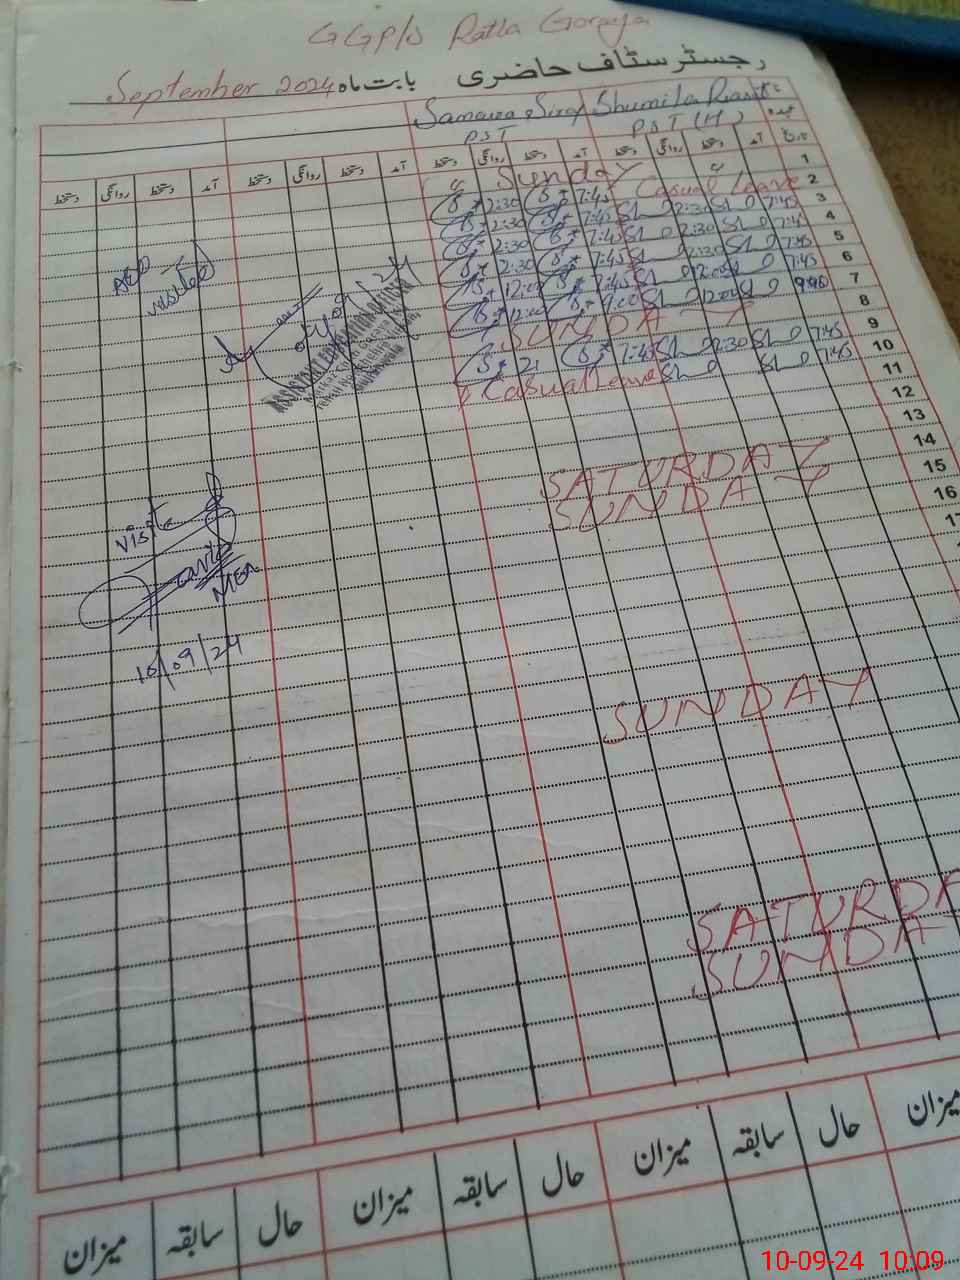 GGP/S Ratta Goraya
رجسٹر سٹاف حاضری بابت ماہ September 2024
Shumila Riast Samavia Siraj
P.S.T (H) P.S.T
تاریخ آمد دستخط روانگی دستخط آمد دستخط روانگی دستخط آمد دستخط روانگی دستخط آمد دستخط روانگی دستخط
1 Sunday
2 Casual Leave 7:45 2:30
3 7:45 2:30 7:45 2:30
4 7:45 2:30 7:45 2:30
5 7:45 2:30 7:45 2:30
6 7:45 12:00 7:45 12:00
7 9:00 12:00 9:00 12:00
8 SUNDAY
9 7:45 2:30 7:45 2:
10 7:45 Casual Leave
11
12
13
14 SATURDAY
15 SUNDAY
16
SUNDAY
SATURDA
SUNDA
visited
ASSISTANT EDUCATION
visited
MEA
10/09/24
میزان حال سابقہ میزان حال سابقہ میزان حال سابقہ میزان
10-09-24 10:09